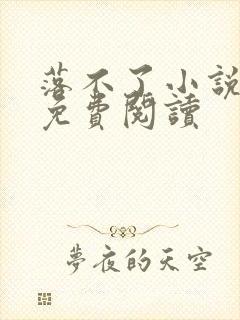 落不了小說
免費閱讀
夢夜的天空